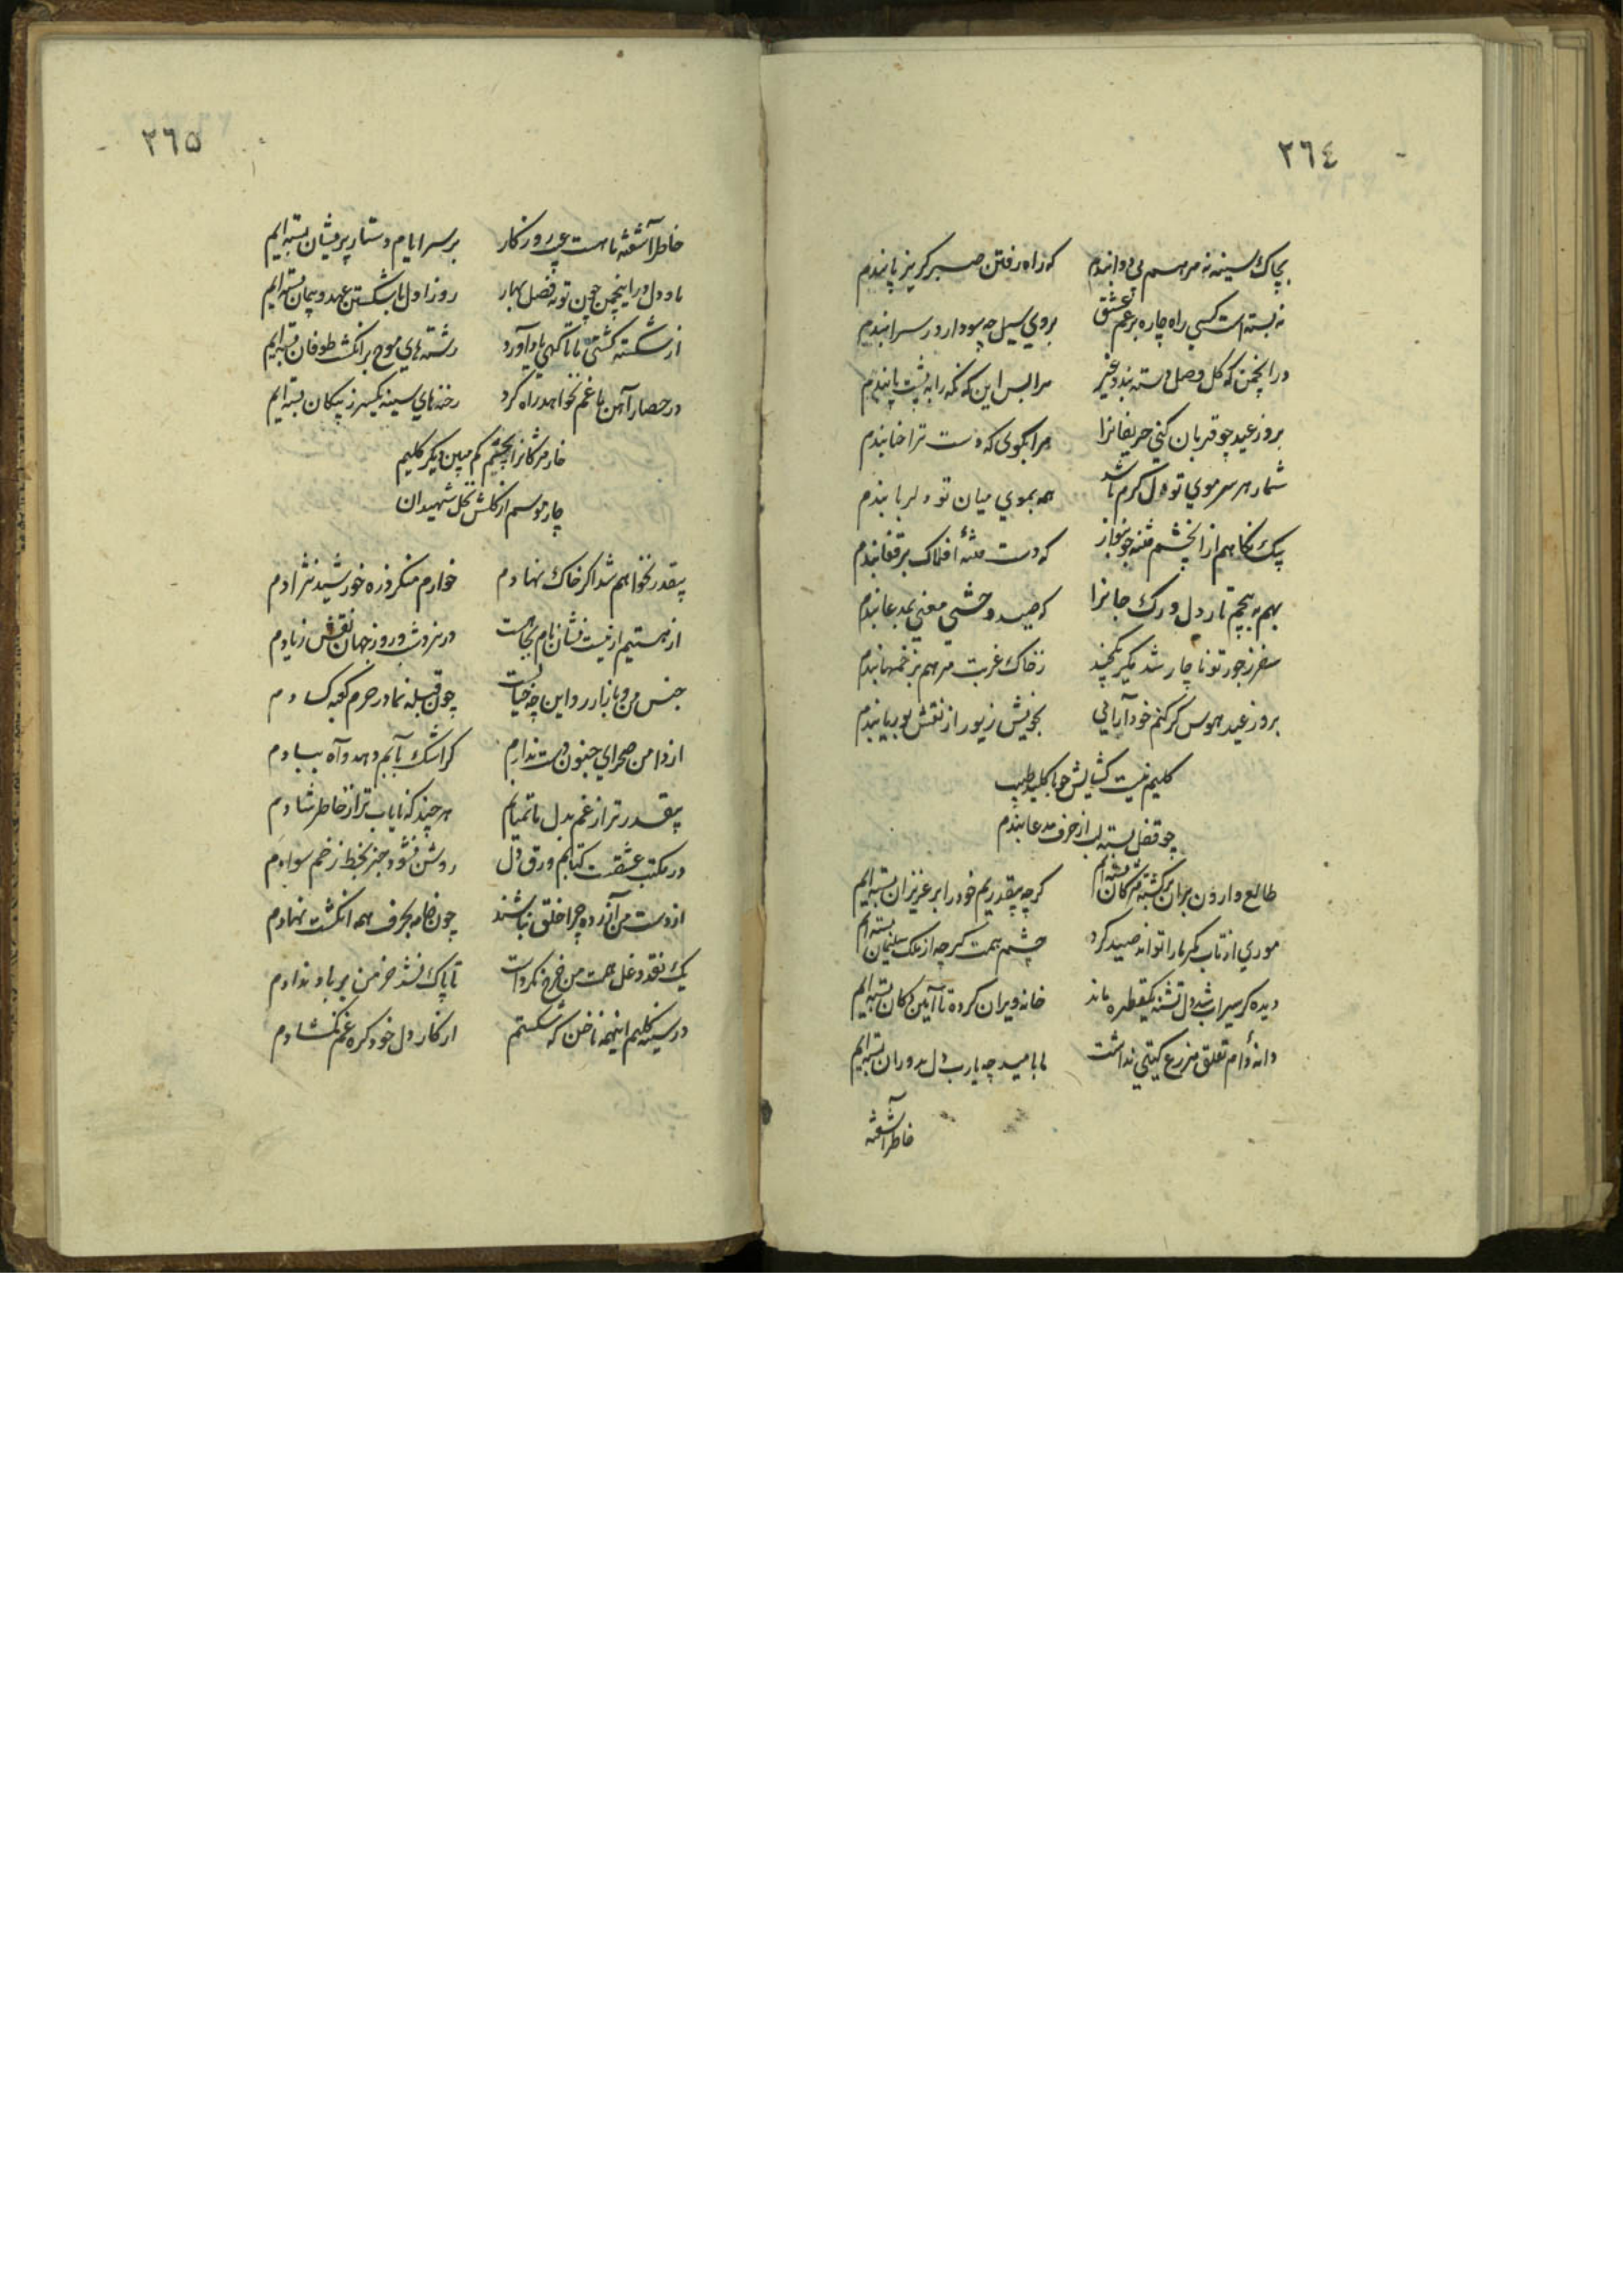 ٢٦٤
بچاك سینه نه مرهم نی دوا بندم که راه رفتن صبر گریز پا بندم
نه بسته است کسی راه چاره بر غم عشق بروی سیل چه سود ار در سرا بندم
در انجمن که گل وصل دسته بندد غیر مرا بس این که نگه را به پشت پا بندم
بروز عید چو قربان کنی حریفانرا مرا بگوی که دست ترا حنا بندم
شمار هر سر موی تو دل گرم باشد همه بموی میان تو دلربا بندم
یک نگاهم از آن چشم فتنه جو بنواز که دست فتنهٔ افلاک بر قفا بندم
بهم به پیچم تار دل و رگ جانرا که صید وحشی معنی بمدعا بندم
سفر ز جور تو ناچار شد مگیر یکچند ز خاک غربت مرهم بزخمها بندم
بروز عید هوس گر کنم خود آرایی بخویش زیور از نقش بوریا بندم
کلیم نیست گشایش چو با کلید طلب
چو قفل بسته لب از حرف مدعا بندم
طالع وارون بر آن برگشته مژگان بسته ایم گرچه بیقدریم خود را بر عزیزان بسته ایم
موری از تاب کمر ما را تواند صید کرد چشم همت گرچه از ملک سلیمان بسته ایم
دیده گر سیراب شد دل تشنه یکقطره ماند خانه ویران کرده تا آیین دکان بسته ایم
دانهٔ دام تعلق مزرع گیتی نداشت ما بامید چه یارب دل بدوران بسته ایم
خاطر آشفته
٢٦٥
خاطر آشفته ما هست پی روزگار بر سر ایام دستار پریشان بسته ایم
ما و دل در اینچمن چون توبه فصل بهار روز اول با شکستن عهد و پیمان بسته ایم
از شکسته کشتی ما تا گهی یاد آورد رشته های موج بر انگشت طوفان بسته ایم
در حصار آهن ما غم نخواهد راه کرد رخنه های سینه یکسر ز پیکان بسته ایم
خار مژگانرا بچشم کم مبین دیگر کلیم
چار موسم از گلش نخل شهیدان
بیقدر نخواهم شد اگر خاک نهادم خوارم منگر ذره خورشید نژادم
از هستیم ار نیست نشان نام بجا هست در نرد شب و روز جهان نقش زیادم
جنس من و بازار روا این چه خیالست چون قبله نما در حرم کعبه کسادم
از دامن صحرای جنون دست ندارم گر اشک بآبم دهد و آه ببادم
بیقدرتر از غم بدل ماتمیانم هر چند که نایاب تر از خاطر شادم
در مکتب عشقت کتابم ورق دل روشن نشود جز بخط زخم سوادم
از دست من آزرده چرا خلق نباشند چون خامه بحرف همه انگشت نهادم
یک نقد دغل همت من خرج نکردست تا پاک نشد خرمن بر باد ندادم
در سینه کلیم اینهمه ناخن که شکستم از کار دل خود گره غم نگشادم